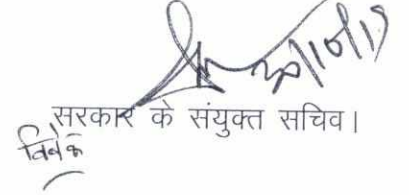 सरकार के संयुक्त सचिव।
विवेक